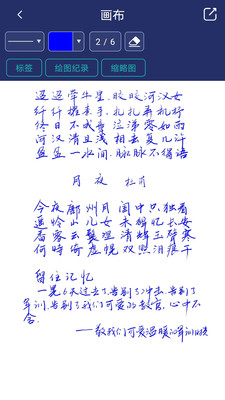 画布
2 / 6
标签 绘图纪录 缩略图
迢迢牵牛星,皎皎河汉女
纤纤擢素手,扎扎弄机杼
终日不成章 泣涕零如雨
河汉清且浅 相去复几许
盈盈一水间,脉脉不得语
月夜 杜甫
今夜鄜州月 闺中只独看
遥怜小儿女 未解忆长安
香雾云鬟湿 清辉玉臂寒
何時倚虚幌 双照泪痕干
留住记忆
一晃6天过去了,告别了冲击,告别了
军训,告别了我们可爱的教官,心中不
舍.
——致我们可爱温暖的军训